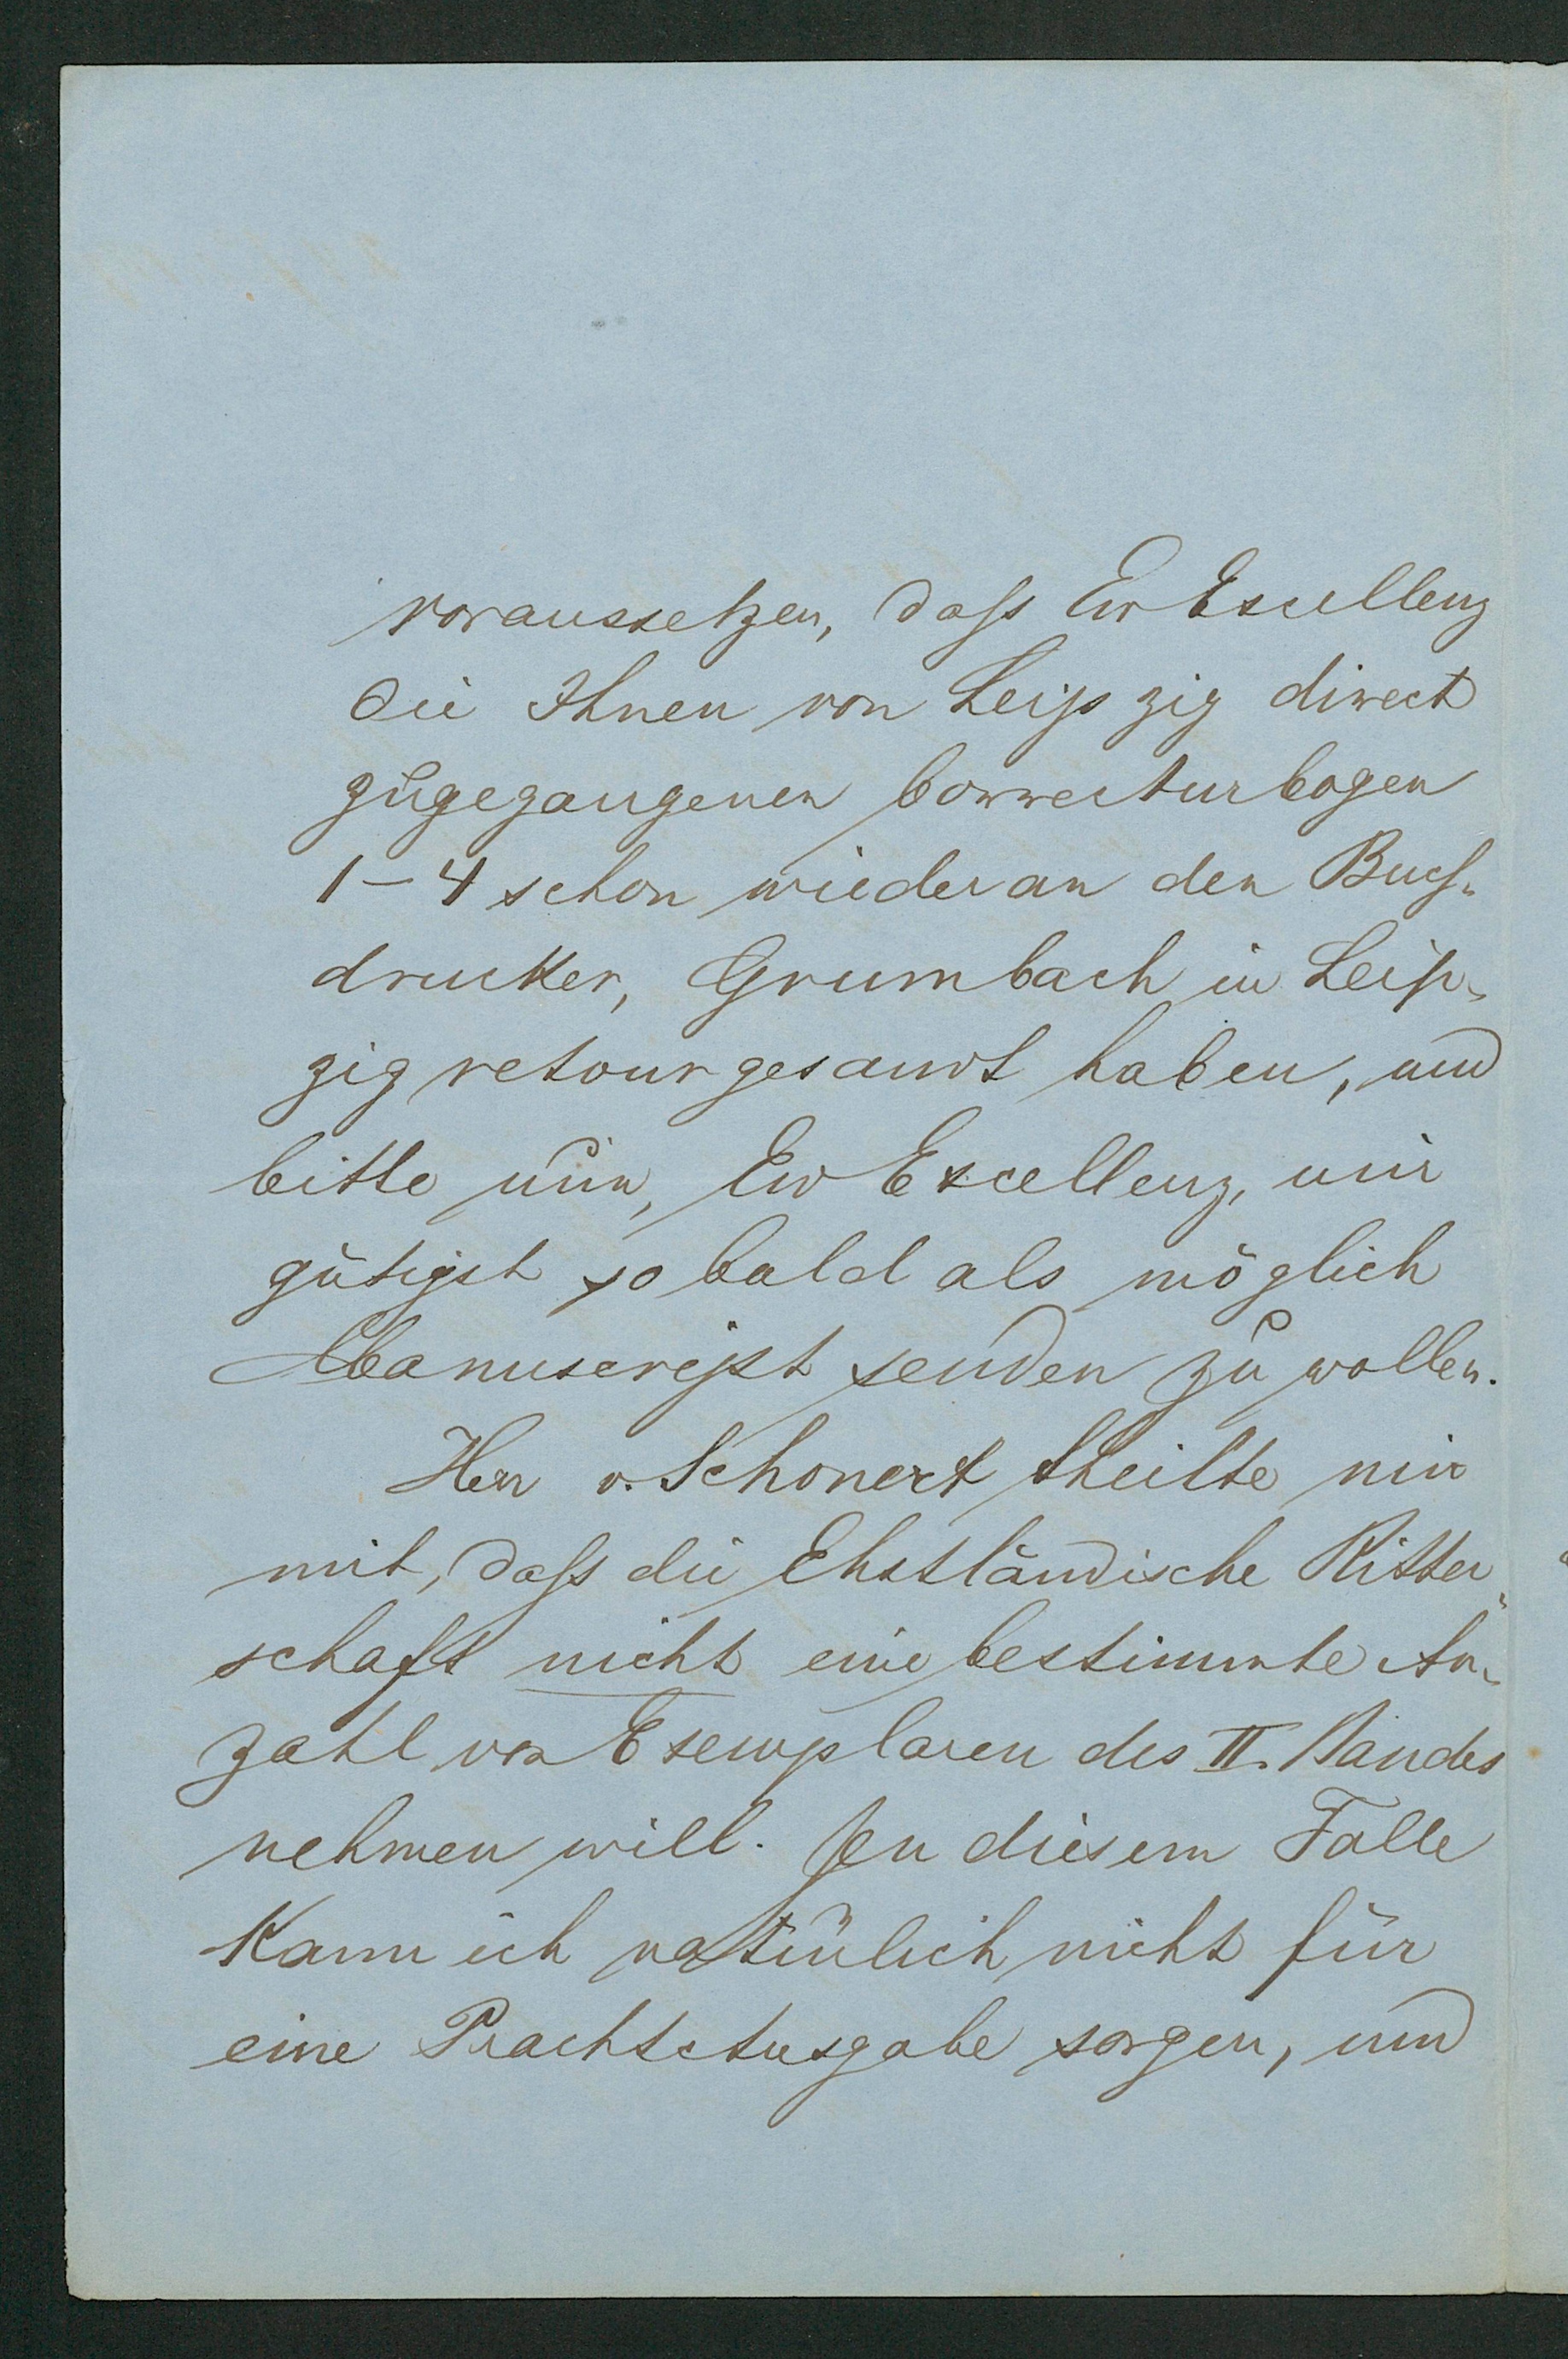 voraussetzen, daſs Ew Excellenz
die Ihnen von Leipzig direct
zugegangenen Correcturbogen
1–4 schon wieder an den Buch-
drucker, Grumbach in Leip-
zig retour gesandt haben, und
bitte nun, Ew Excellenz, mir
gütigst so bald als möglich
Manuscript senden zu wollen.
Herr v. Schonert theilte mir
mit, daſs die Ehstländische Ritter-
schaft nicht eine bestimmte An-
zahl von Exemplaren des II. Bandes
nehmen will. In diesem Falle
kann ich natürlich nicht für
eine Prachtausgabe sorgen, und